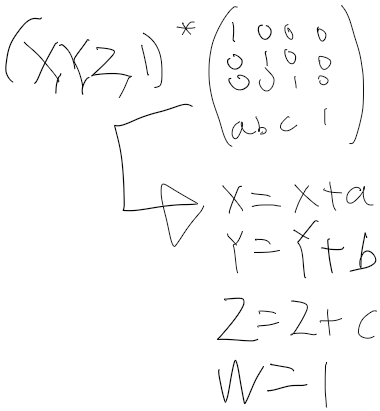 (X,Y,Z,1) * (1 0 0 0
0 1 0 0
0 0 1 0
a b c 1)
X=X+a
Y=Y+b
Z=Z+c
W=1